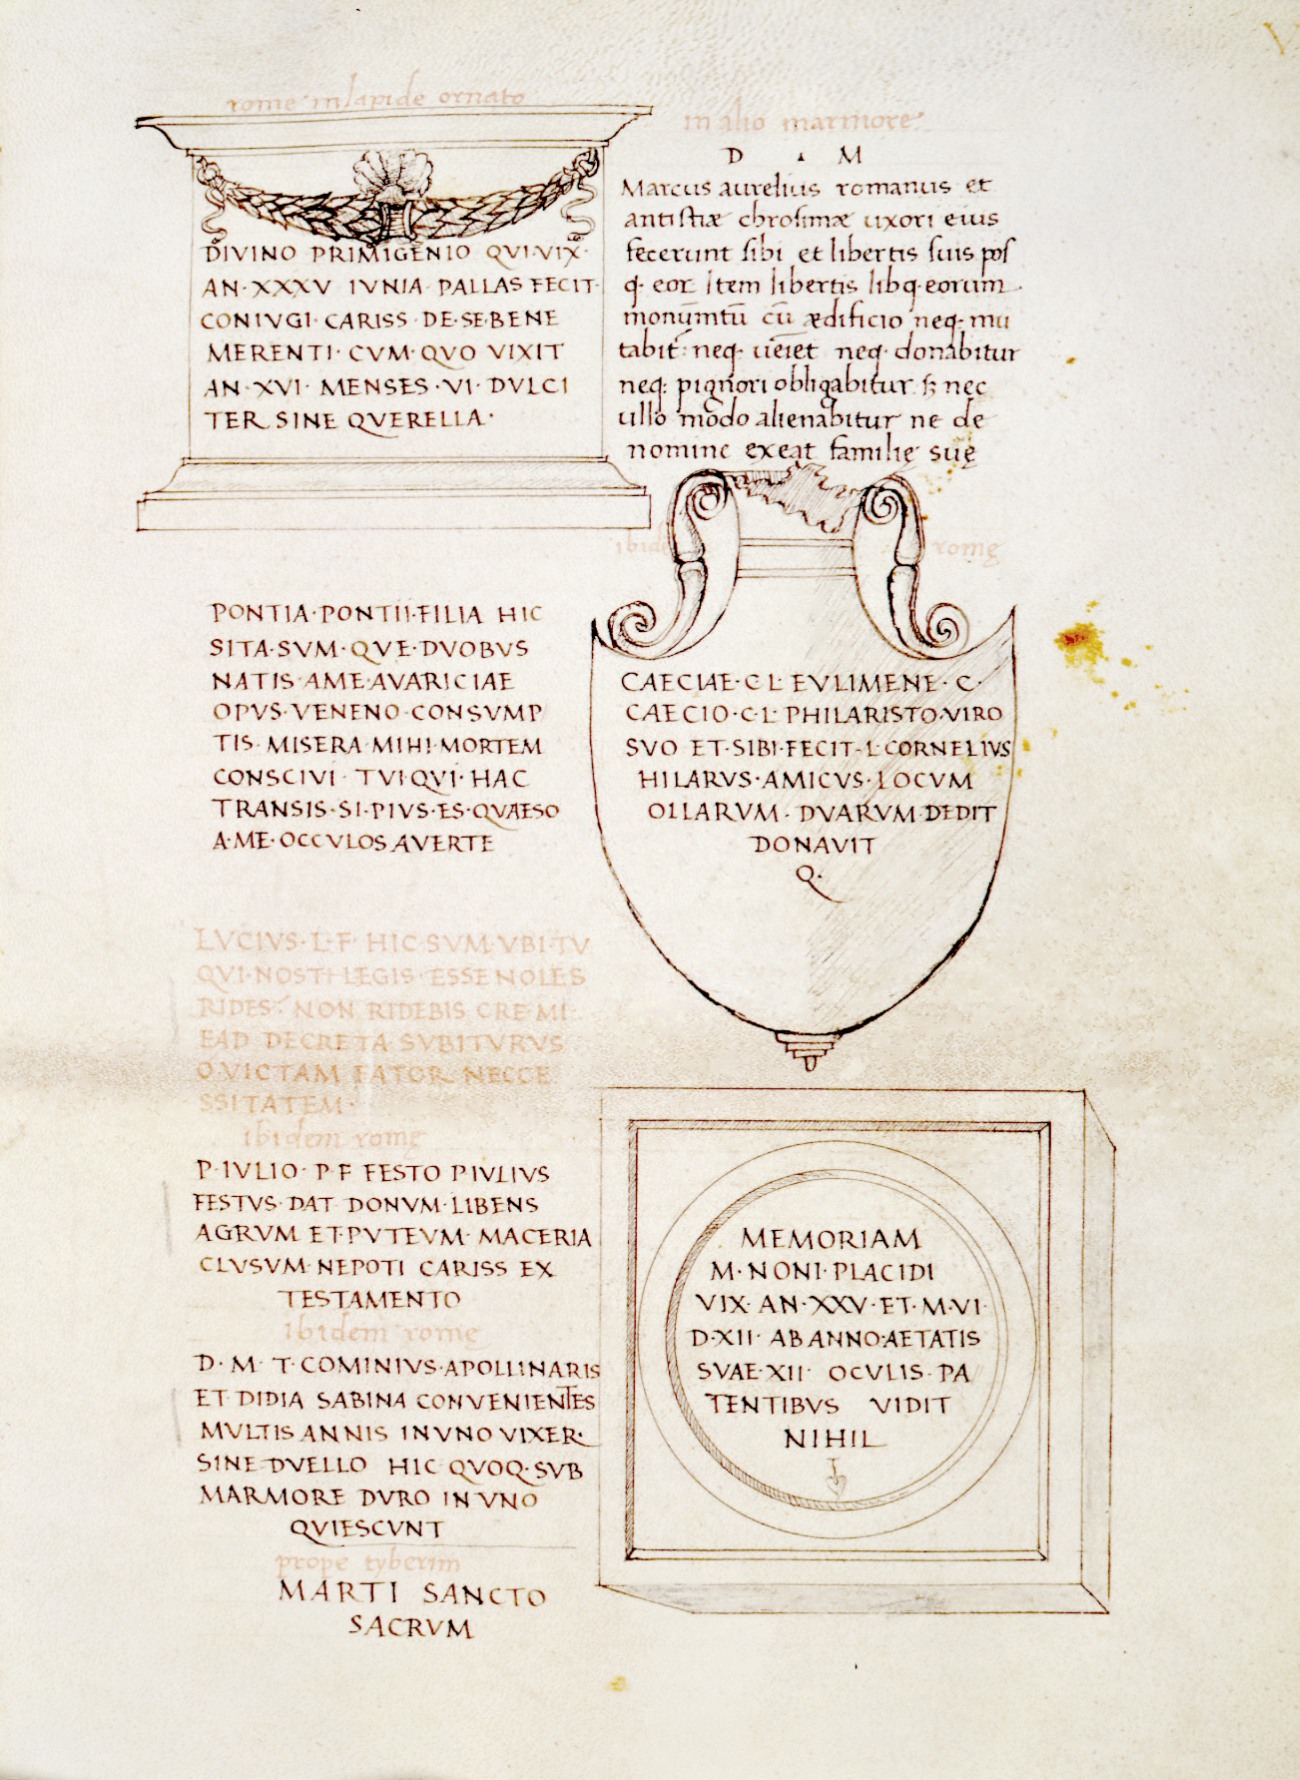 rome in lapide ornato
DIVINO PRIMIGENIO QVI·VIX·
AN·XXXV IVNIA PALLAS FECIT·
CONIVGI·CARISS·DE·SE·BENE
MERENTI·CVM·QVO VIXIT
AN·XVI·MENSES·VI·DVLCI
TER SINE QVERELLA·
in alio marmore
D · M
Marcus aurelius romanus et
antistiæ chrosimæ uxori eius
fecerunt sibi et libertis suis pos
q. eor Item libertis libq. eorum.
monum̄tū cū ædificio neq. mu
tabit: neq. ueiet neq. donabitur
neq. pignori obligabitur s; nec
ullo modo alienabitur ne de
nomine exeat familie suę
ibidem romę
PONTIA·PONTII·FILIA HIC
SITA·SVM·QVE·DVOBVS
NATIS·AME·AVARICIAE
OPVS·VENENO·CONSVMP
TIS·MISERA·MIHI·MORTEM
CONSCIVI·TVI·QVI·HAC
TRANSIS·SI·PIVS·ES·QVAESO
A·ME·OCCVLOS AVERTE
CAECIAE·C L EVLIMENE·C·
CAECIO·C·L·PHILARISTO·VIRO
SVO ET·SIBI·FECIT·L·CORNELIVS
HILARVS·AMICVS·LOCVM
OLLARVM·DVARVM·DEDIT
DONAVIT
Q·
LVCIVS·L·F·HIC·SVM·VBI·TV
QVI·NOSTI LEGIS·ESSE NOLES
RIDES·NON RIDEBIS CRE MI·
EAD DECRETA SVBITVRVS
O VICTAM FATOR NECCE
SSITATEM·
ibidem romę
P·IVLIO·P·F FESTO P IVLIVS
FESTVS·DAT DONVM·LIBENS
AGRVM ET·PVTEVM·MACERIA
CLVSVM·NEPOTI CARISS EX
TESTAMENTO
ibidem romę
D·M·T·COMINIVS·APOLLINARIS
ET DIDIA SABINA CONVENIENTES
MVLTIS ANNIS IN VNO VIXER·
SINE DVELLO HIC QVOQ·SVB
MARMORE DVRO IN VNO
QVIESCVNT
prope tyberim
MARTI SANCTO
SACRVM
MEMORIAM
M·NONI·PLACIDI
VIX·AN·XXV·ET·M·VI·
D·XII·AB ANNO·AETATIS
SVAE·XII·OCVLIS·PA
TENTIBVS VIDIT
NIHIL